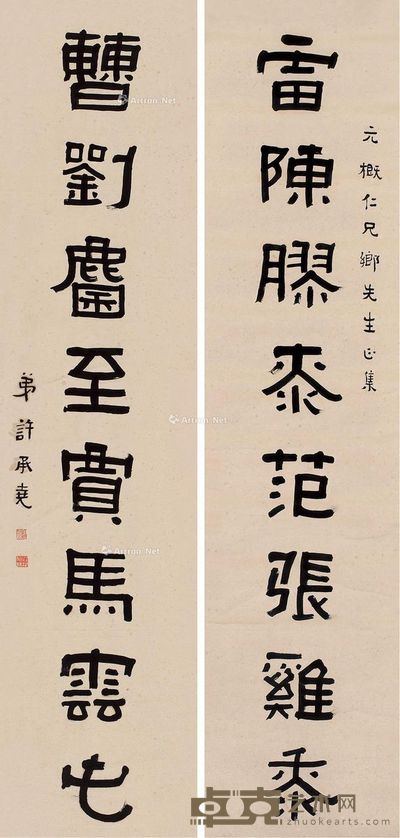 元概仁兄鄉先生正集
雷陳膠桼范張雞黍
曹劉麕至賈馬雲屯
弟許承堯
Artron.Net
Artron.Net
Artron.Net
Artron.Net
卓克艺术网
zhuokearts.com